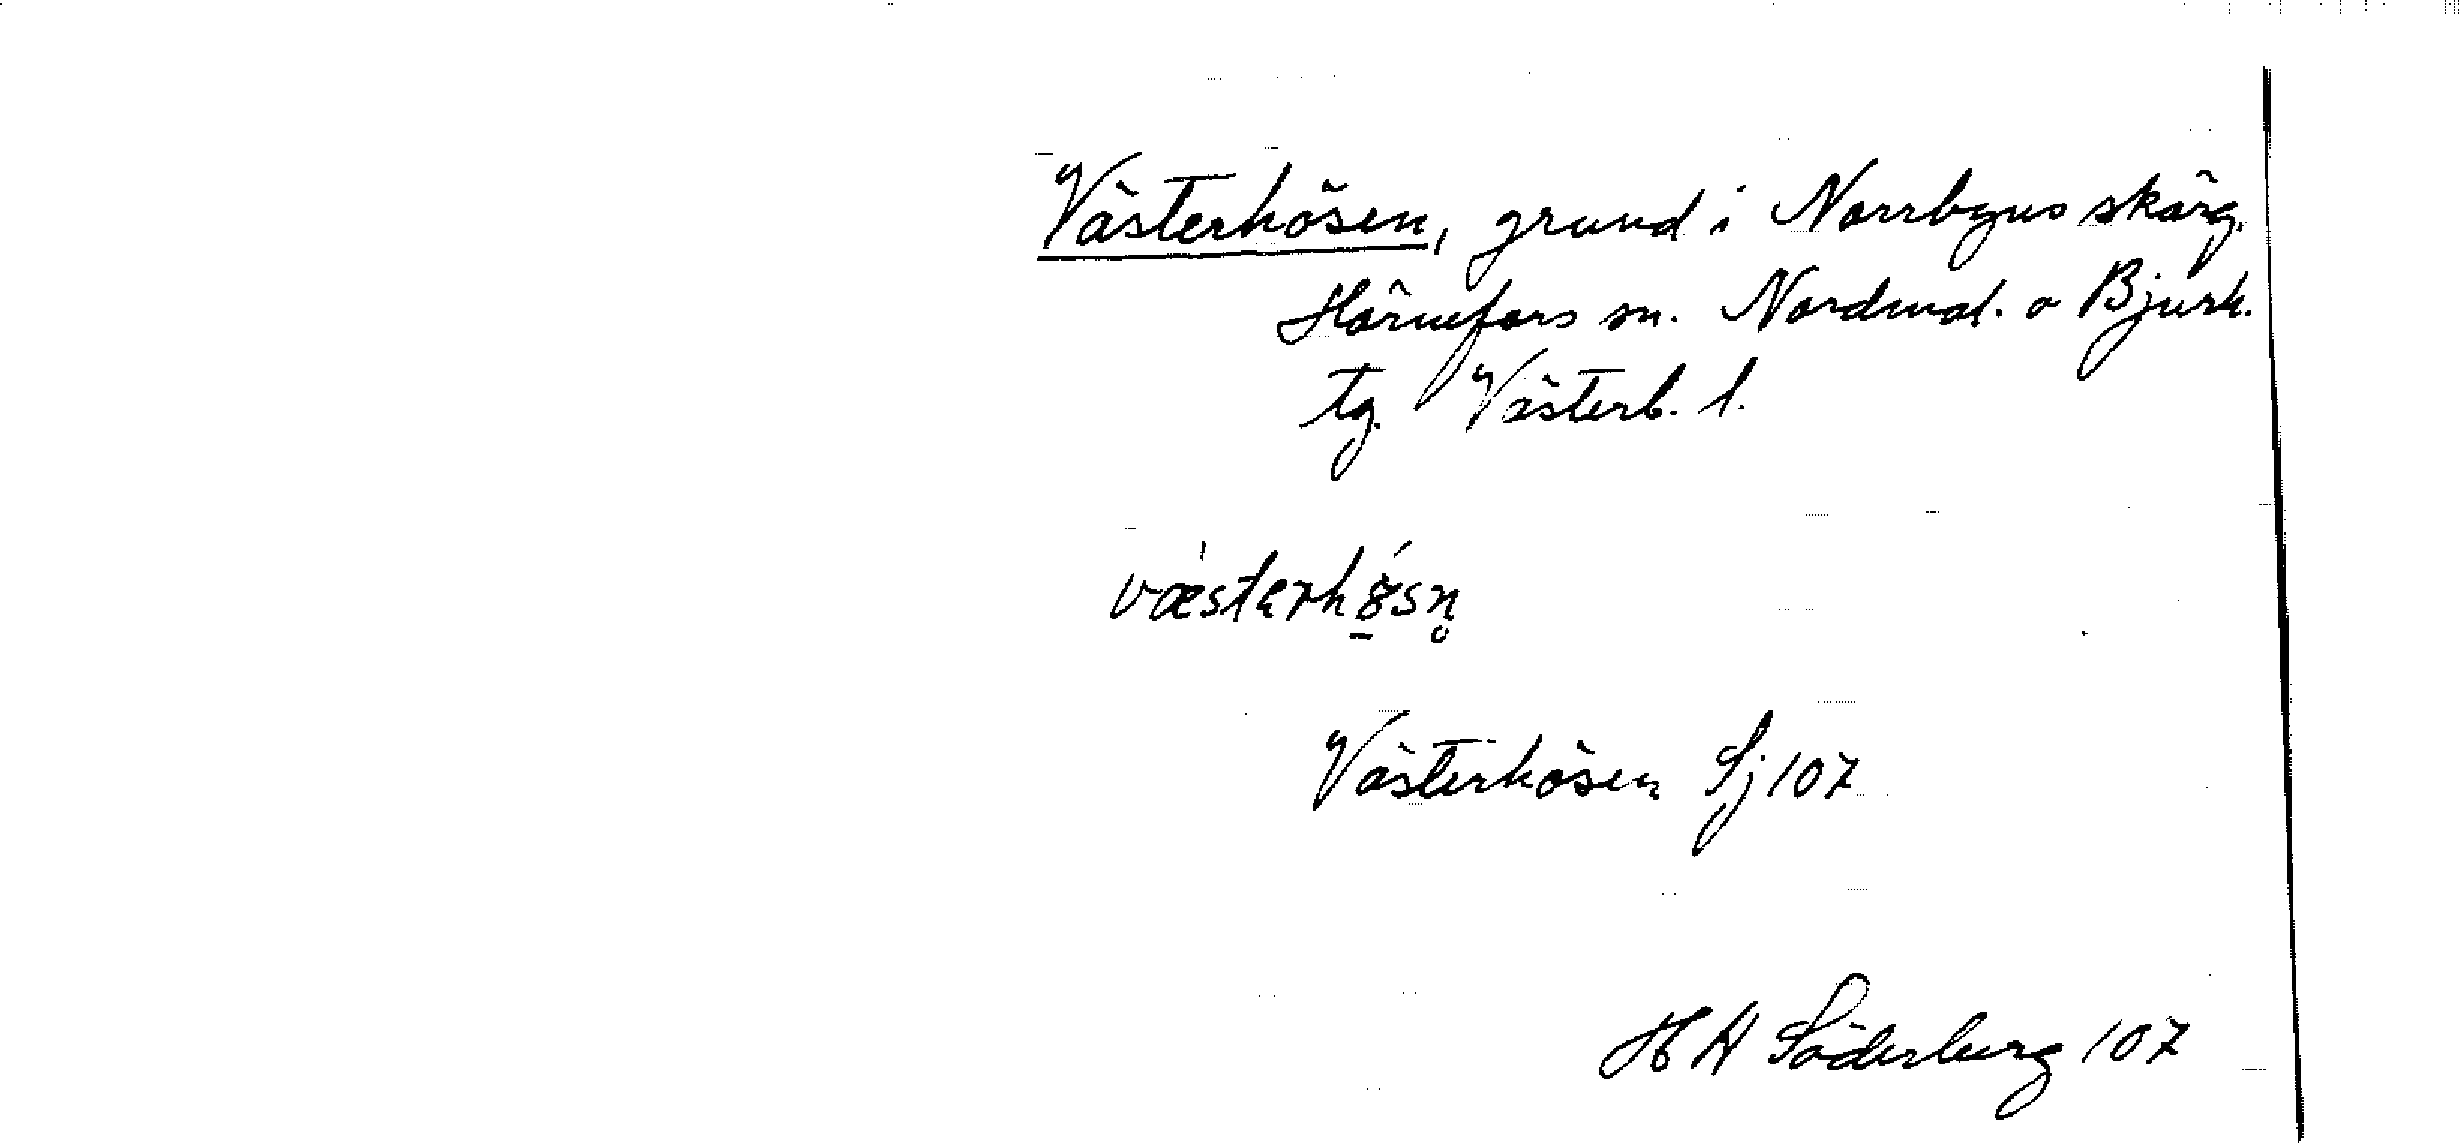 Västerhösen, grund i Norrbyns skärg.
Hörnefors sn. Nordmal. o Bjurh.
tg. Västerb. l.
væ̀stərhǿ̱sn̥
Västerhösen Sj 107
H A Söderberg 107